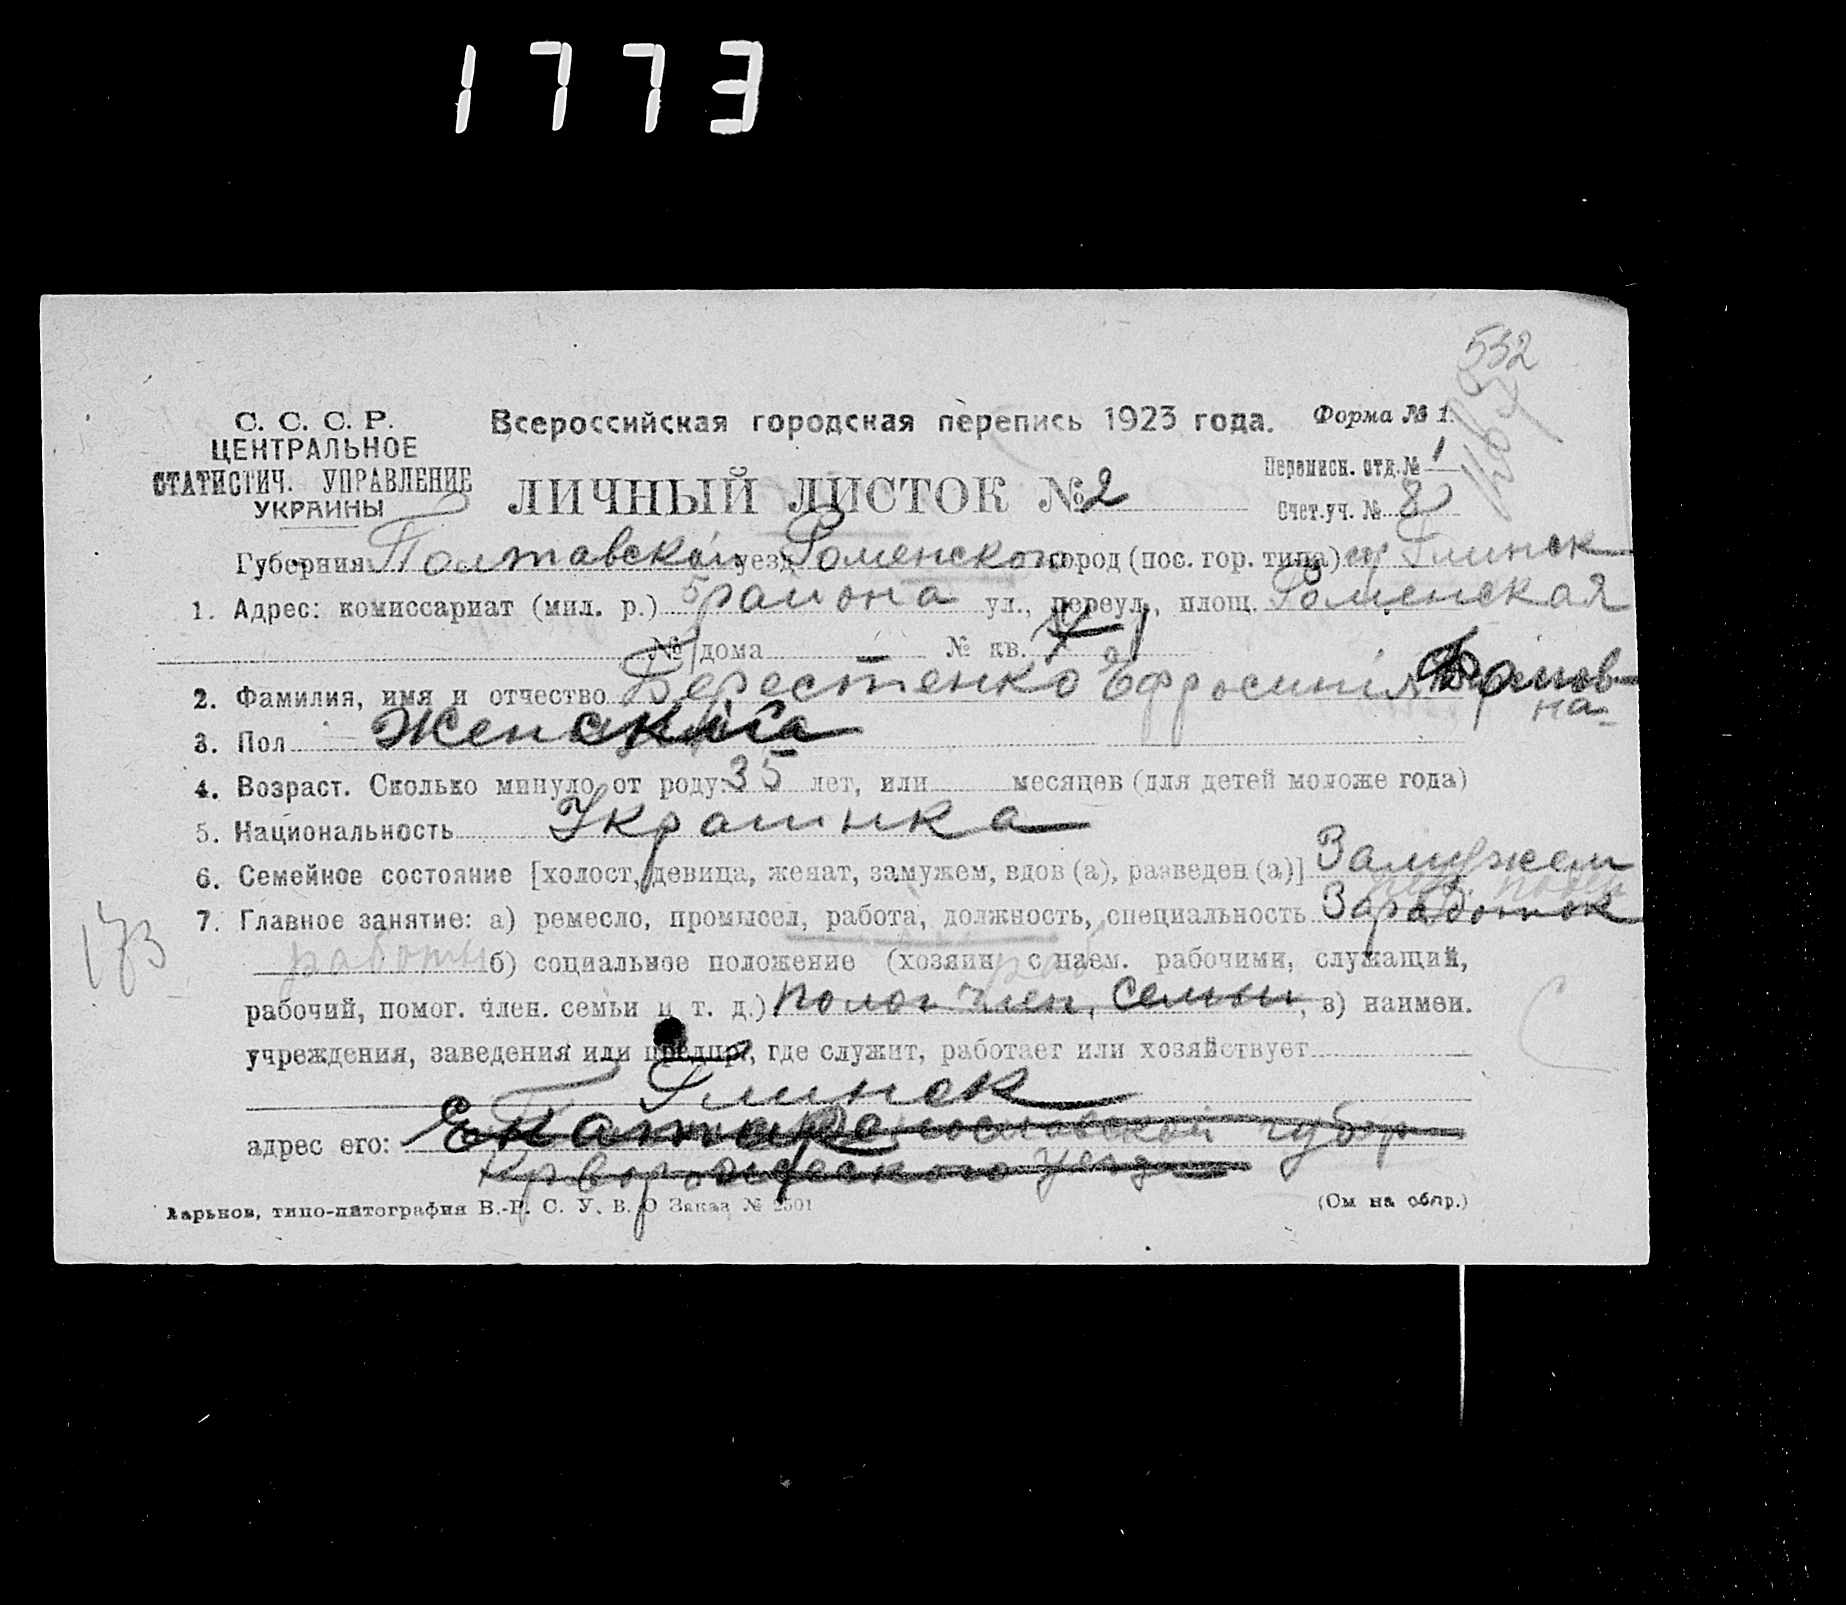 1773
532
С. С. С. Р.
ЦЕНТРАЛЬНОЕ
СТАТИСТИЧ. УПРАВЛЕНИЕ
УКРАИНЫ
Всероссийская городская перепись 1923 года. Форма № 1.
ЛИЧНЫЙ ЛИСТОК № 2
Переписн. отд. № 1
Счет. уч. № 8
Губерния Полтавской уезд Роменского город (пос. гор. типа) Глинск
1. Адрес: комиссариат (мил. р.) 5 района ул., переул., площ. Роменская
№ дома № кв.
2. Фамилия, имя и отчество Берестенко Ефросинія
на
3. Пол Женская
4. Возраст. Сколько минуло от роду: 35 лет, или месяцев (для детей моложе года)
5. Национальность Украинка
6. Семейное состояние [холост, девица, женат, замужем, вдов (а), разведен (а)] Замужем
7. Главное занятие: а) ремесло, промысел, работа, должность, специальность Заработок
173
работы б) социальное положение (хозяин с наем. рабочими, служащий,
рабочий, помог. член. семьи и т. д.) помог член, семьи, в) наимен.
учреждения, заведения или предпр., где служит, работает или хозяйствует
Глинск
адрес его: Екатеринославской губер
Криворожского уезда
Харьков, типо-литография В.-Р. С. У. В. О Заказ № 2501 (См на обор.)